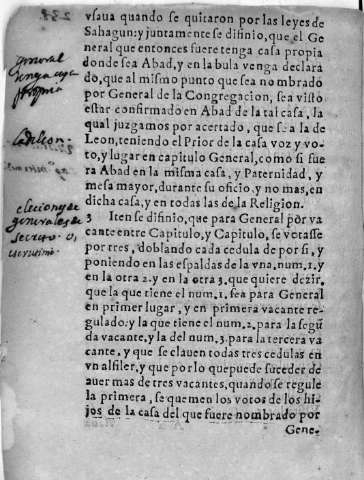 vsaua quando se quitaron por las leyes de
Sahagun: y juntamente se difinio, que el Ge
neral que entonces fuere tenga casa propia
donde sea Abad, y en la bula venga declara
do, que al mismo punto que sea nombrado
por General de la Congregacion, sea visto
estar confirmado en Abad de la tal casa, la
qual juzgamos por acertado, que sea la de
Leon, teniendo el Prior de la casa voz y vo-
to, y lugar en capitulo General, como si fue
ra Abad en la misma casa, y Paternidad, y
mesa mayor, durante su oficio, y no mas, en
dicha casa, y en todas las de la Religion.
3 Iten se difinio, que para General por va
cante entre Capitulo, y Capitulo, se votasse
por tres, doblando cada cedula de por si, y
poniendo en las espaldas de la vna. num. 1. y
en la otra 2. y en la otra 3. que quiere dezir,
que la que tiene el num. 1. sea para General
en primer lugar, y en primera vacante re-
gulado: y la que tiene el num. 2. para la segũ
da vacante, y la del num. 3. para la tercera va
cante, y que se clauen todas tres cedulas en
vn alfiler, y que por lo que puede suceder de
auer mas de tres vacantes, quando se regule
la primera, se quemen los votos de los hi-
jos de la casa del que fuere nombrado por
Gene-
general
tenga casa
propia
Leon.
elecion de
generales de
secreto